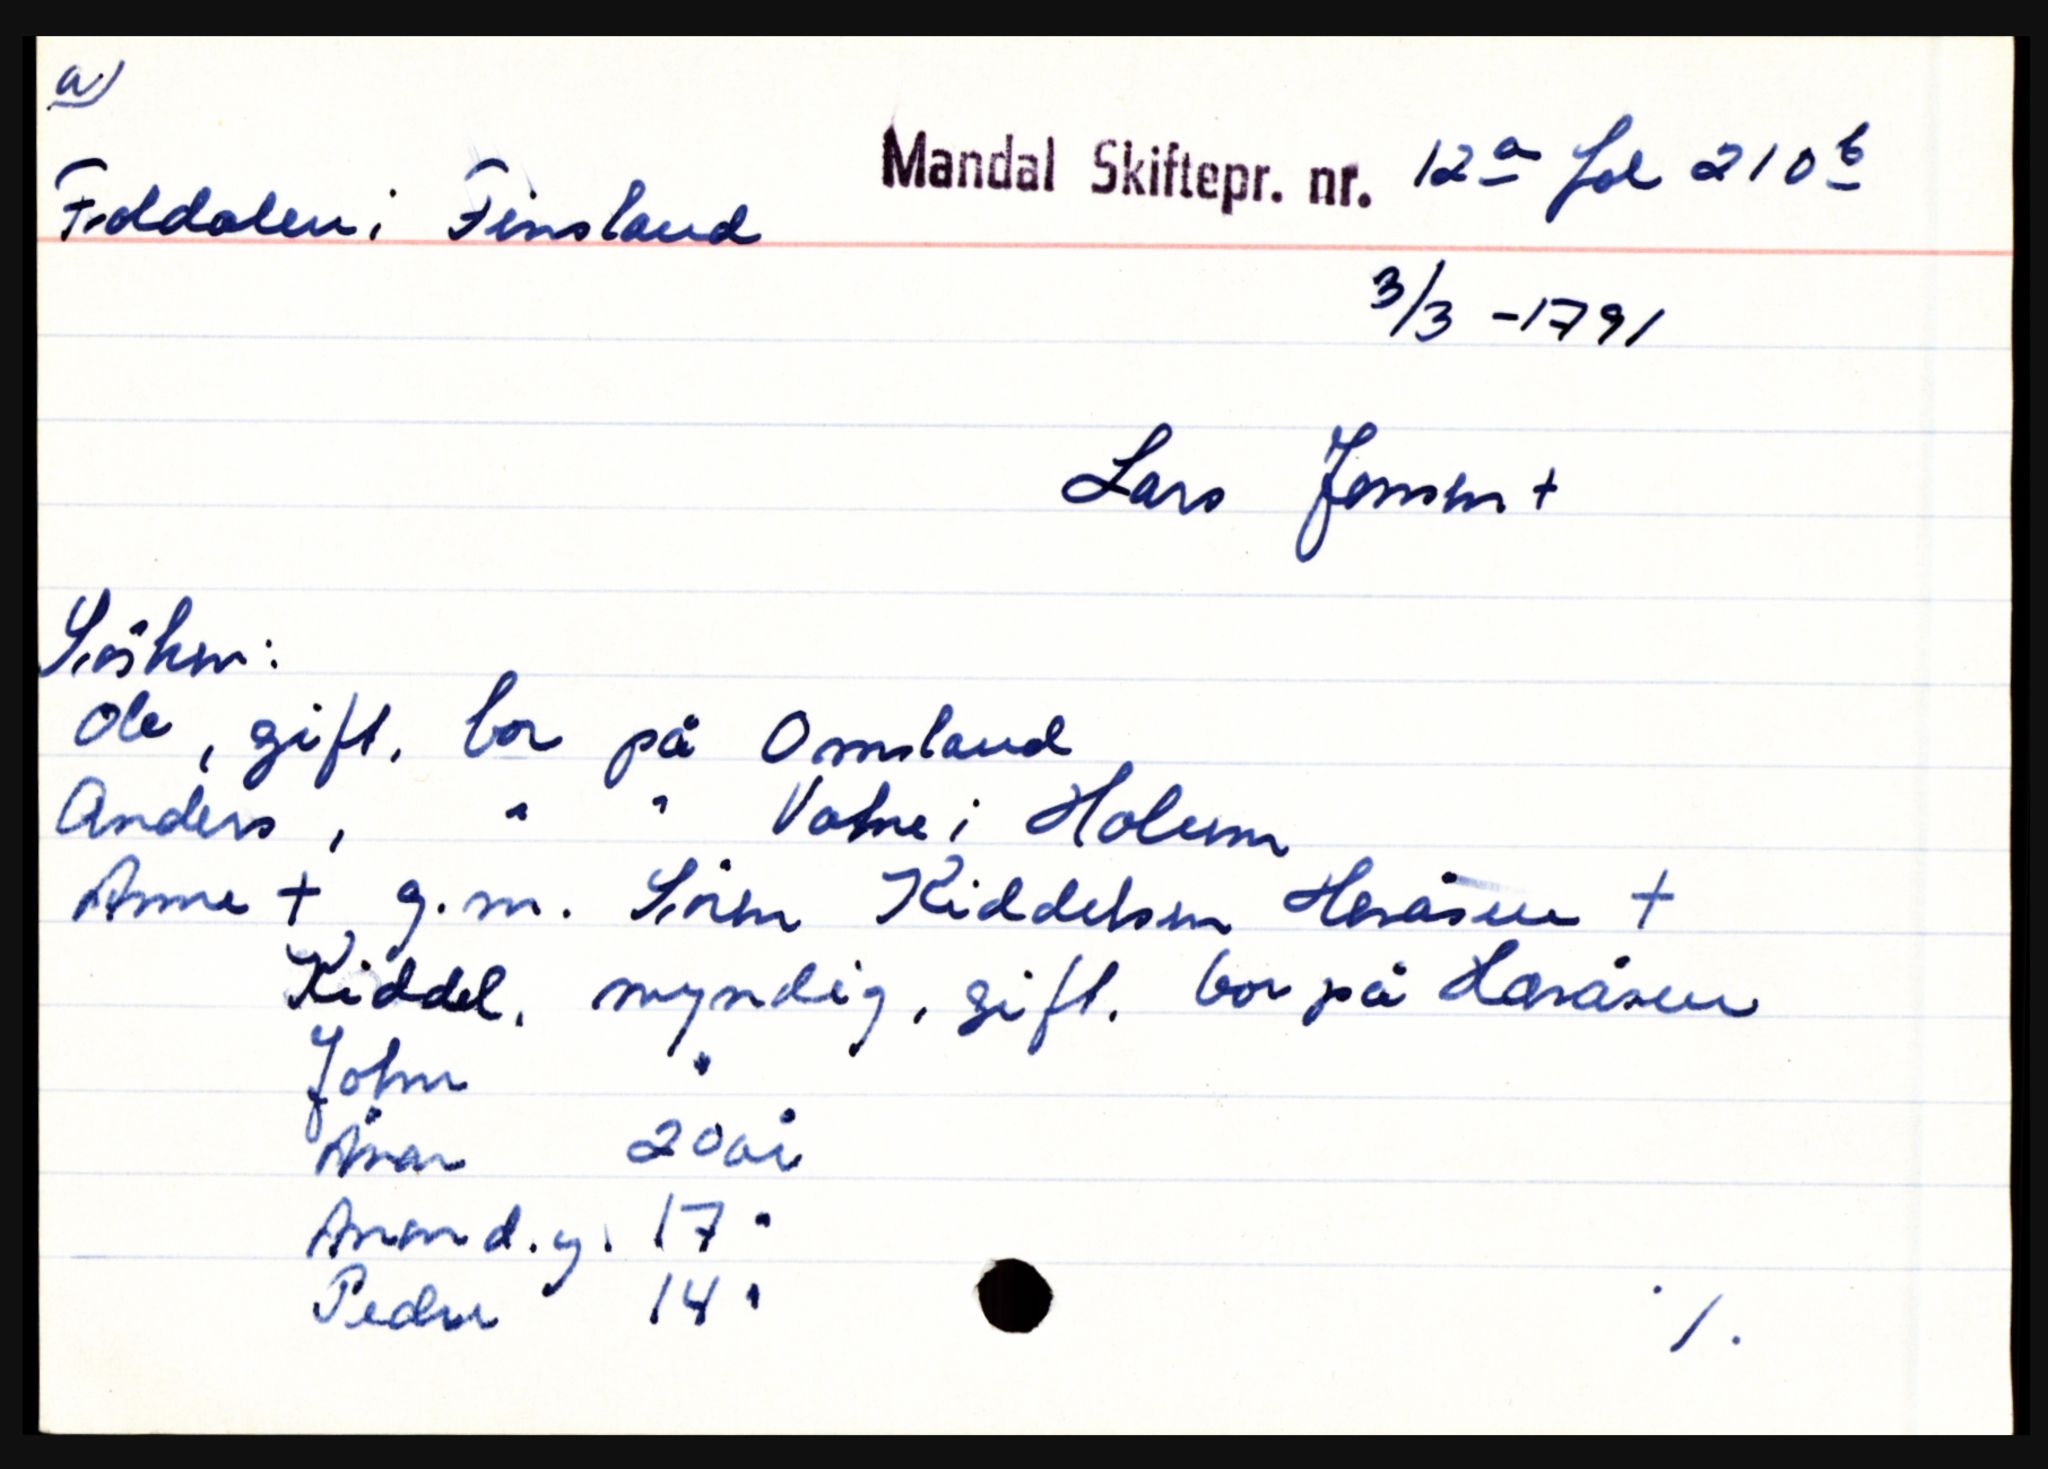 a)
Foldalen i Finsland
Mandal Skiftepr. nr. 12a fol 210b
3/3 - 1791
Lars Jensen +
Søsken:
Ole, gift, bor på Omsland
Anders, " " Valne i Holum
Anne + g.m. Sören Kiddelsen Heråsen +
Kiddel, myndig, gift, bor på Heråsen
John "
Anna 20 år
Anne d.y. 17 "
Peder 14 "
1.